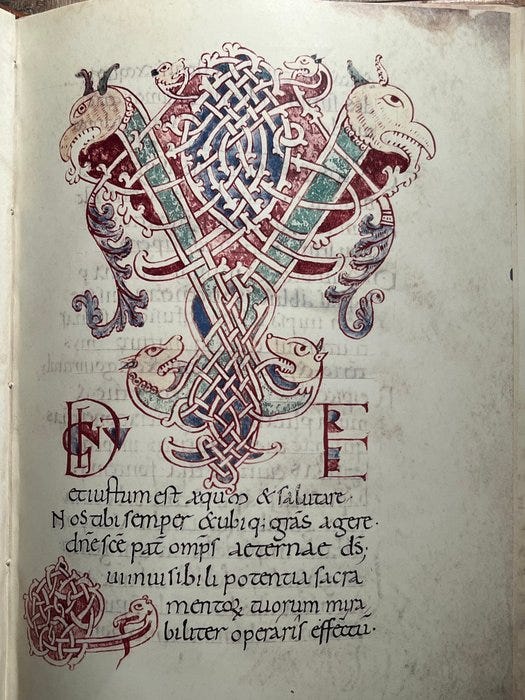 V
DIGNV RE
etiustum est æquū & salutare·
Nos tibi semper & ubiq; grās agere·
dn̄e scē pat̄ omp̄s aeternae ds̄;
Qui inuisibili potentia sacra
mentoꝝ tuorum mira
biliter operaris effectū·